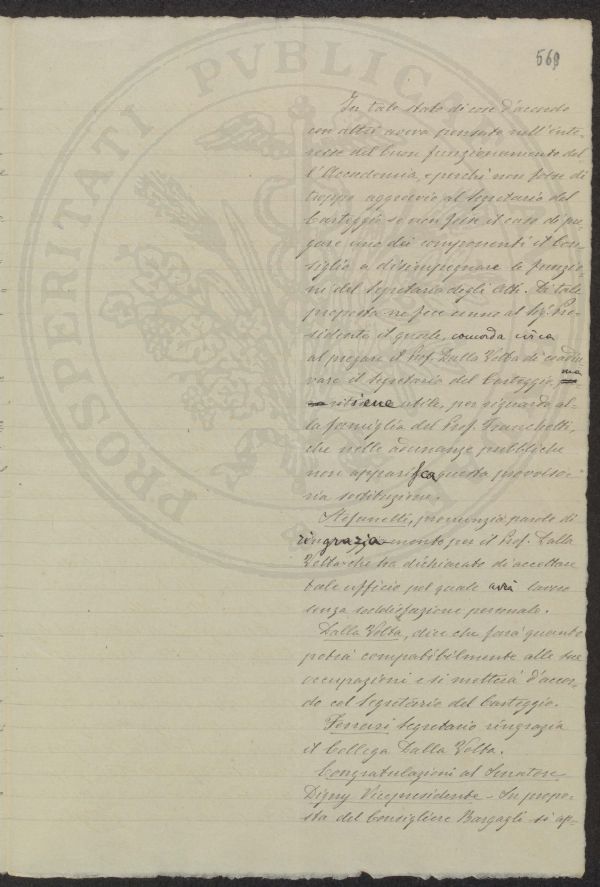 569
PROSPERITATI PVBLICAE
In tale stato di cose d'accordo
con altri aveva pensato nell'inte-
resse del buon funzionamento del
l'Accademia, e perché non fosse di
troppo aggravio al Segretario del
Carteggio se vien fosse il caso di pre-
gare uno dei componenti il Con-
siglio a disimpegnare le funzio-
ni del Segretario degli Atti. Di tale
proposta ne fece cenno al Sig. Pre-
sidente il quale, concorda circa
al pregare il Prof. Dalla Volta di coadiu
vare il Segretario del Carteggio, ma
ritiene utile, per riguardo al-
la famiglia del Prof.
che nelle adunanze pubbliche
non apparisca questa provviso-
ria sostituzione.
Stefanelli, pronunzia parole di
ringraziamento per il Prof. Dalla
Volta che ha dichiarato di accettare
tale ufficio pel quale avrà lavoro
senza soddisfazione personale.
Dalla Volta, dice che farà quanto
potrà compatibilmente alle sue
occupazioni e si metterà d'accor-
do col Segretario del Carteggio.
Ferrari Segretario ringrazia
il Collega Dalla Volta.
Congratulazioni al Senatore
Digny Vicepresidente - Su propo-
sta del Consigliere Bargagli si ap-